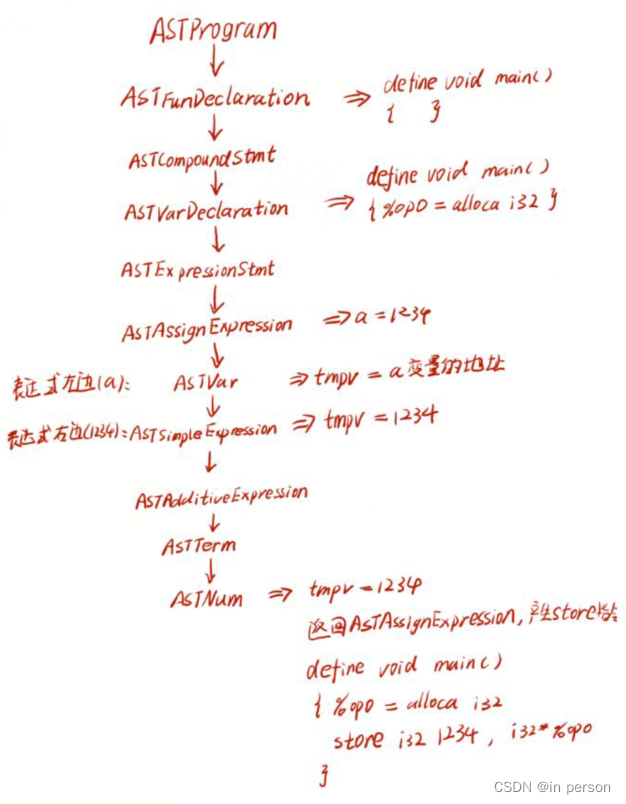 ASTProgram
ASTFunDeclaration ⇒ define void main()
{ }
ASTCompoundStmt
ASTVarDeclaration ⇒ define void main()
{ %op0 = alloca i32 }
ASTExpressionStmt
ASTAssignExpression ⇒ a = 1234
表达式左边(a): ASTVar ⇒ tmpv = a变量的地址
表达式右边(1234): ASTSimpleExpression ⇒ tmpv = 1234
ASTAdditiveExpression
ASTTerm
ASTNum ⇒ tmpv = 1234
返回ASTAssignExpression, 产生store指令
define void main()
{ %op0 = alloca i32
store i32 1234, i32* %op0
}
CSDN @in person